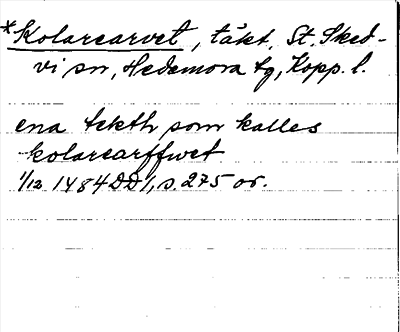 *Kolarearvet, täkt, St. Sked-
vi sn, Hedemora tg, Kopp. l.
ena tekth som kalles
kolarearffwet
1/12 1484 DD 1, s. 275 or.